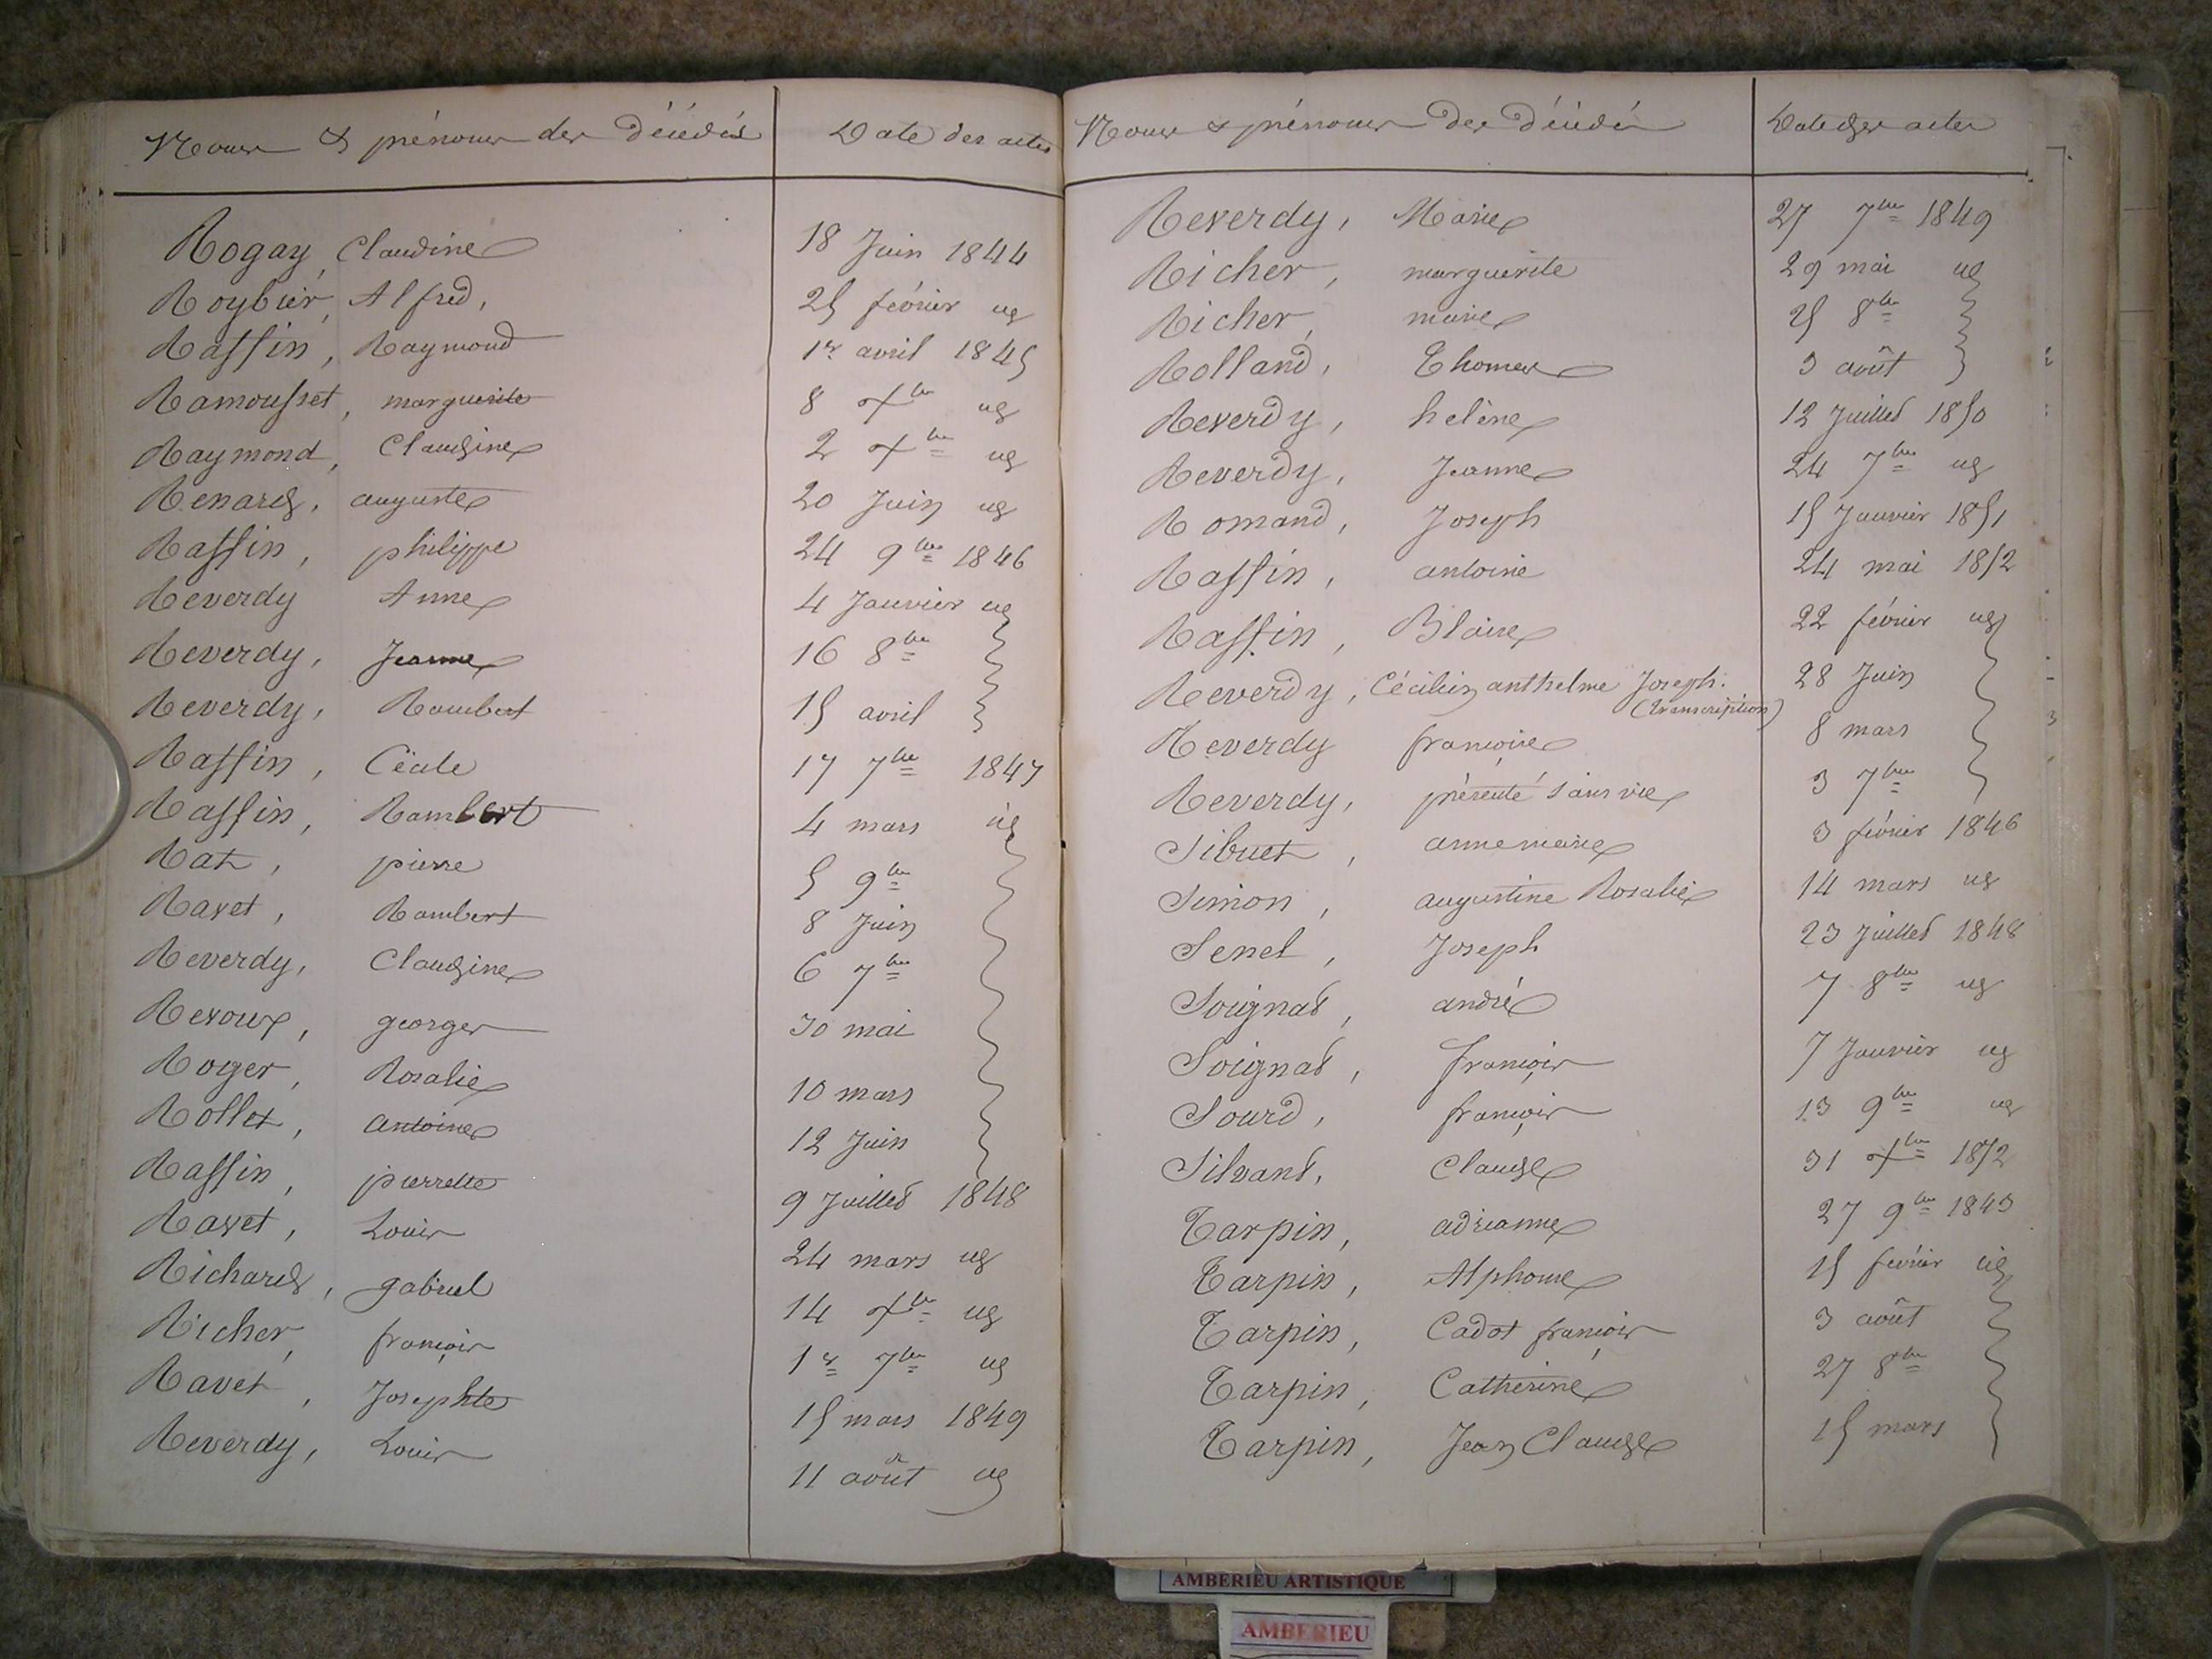 Noms & prénoms des décédés Date des actes
Rogay, Claudine 18 Juin 1844
Roybier, Alfred, 25 février id
Raffin, Raymond 1er avril 1845
Ramousset, marguerite 8 Xbre id
Raymond, Claudine 2 Xbre id
Renard, auguste 20 Juin id
Raffin, philippe 24 9bre 1846
Reverdy Anne 4 Janvier id
Reverdy, Jeanne 16 8bre
Reverdy, Rambert 15 avril
Raffin, Cécile 17 7bre 1847
Raffin, Rambert 4 mars id
Rat, pierre 5 9bre
Ravet, Rambert 8 Juin
Reverdy, Claudine 6 7bre
Revoux, georges 30 mai
Royer, Rosalie 10 mars
Rollet, Antoine 12 Juin
Raffin, pierrette 9 Juillet 1848
Ravet, Louis 24 mars id
Richard, gabriel 14 Xbre id
Richer, françois 1er 7bre id
Ravet, Josephte 15 mars 1849
Reverdy, Louis 11 août id
Noms & prénoms des décédés Date des actes
Reverdy, Marie 27 7bre 1849
Richer, marguerite 29 mai id
Richer, marie 25 8bre
Rolland, Thomas 3 août
Reverdy, helène 12 Juillet 1850
Reverdy, Jeanne 24 7bre id
Romand, Joseph 15 Janvier 1851
Raffin, antoine 24 mai 1852
Raffin, Blaise 22 février id
Reverdy, Cécilien anthelme Joseph. 28 Juin
(transcription)
Reverdy françoise 8 mars
Reverdy, présenté sans vie 3 7bre
Sibuet, anne marie 3 février 1846
Simon, augustine Rosalie 14 mars id
Senel, Joseph 23 Juillet 1848
Soignat, andré 7 8bre id
Soignat, françois 7 Janvier id
Sourd, françois 13 9bre id
Silvant, Claude 31 Xbre 1852
Tarpin, adrianne 27 9bre 1843
Tarpin, Alphonse 15 février id
Tarpin, Cadot françois 3 août
Tarpin, Catherine 27 8bre
Tarpin, Jean Claude 15 mars
AMBERIEU ARTISTIQUE
AMBERIEU